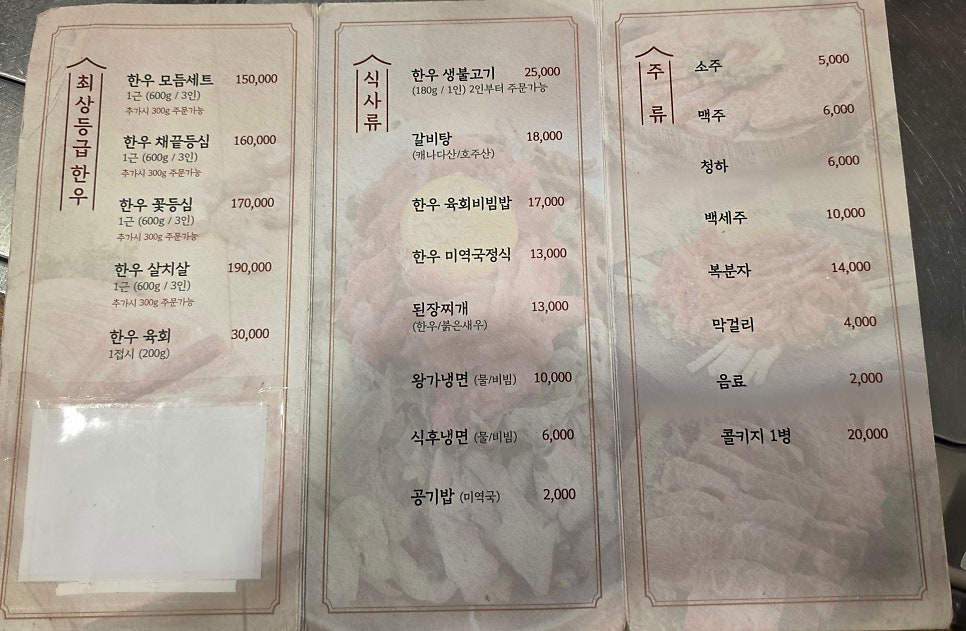 최상등급한우
한우 모듬세트 150,000
1근 (600g / 3인)
추가시 300g 주문가능
한우 채끝등심 160,000
1근 (600g / 3인)
추가시 300g 주문가능
한우 꽃등심 170,000
1근 (600g / 3인)
추가시 300g 주문가능
한우 살치살 190,000
1근 (600g / 3인)
추가시 300g 주문가능
한우 육회 30,000
1접시 (200g)
식사류
한우 생불고기 25,000
(180g / 1인) 2인부터 주문가능
갈비탕 18,000
(캐나다산/호주산)
한우 육회비빔밥 17,000
한우 미역국정식 13,000
된장찌개 13,000
(한우/붉은새우)
왕가냉면 (물/비빔) 10,000
식후냉면 (물/비빔) 6,000
공기밥 (미역국) 2,000
주류
소주 5,000
맥주 6,000
청하 6,000
백세주 10,000
복분자 14,000
막걸리 4,000
음료 2,000
콜키지 1병 20,000